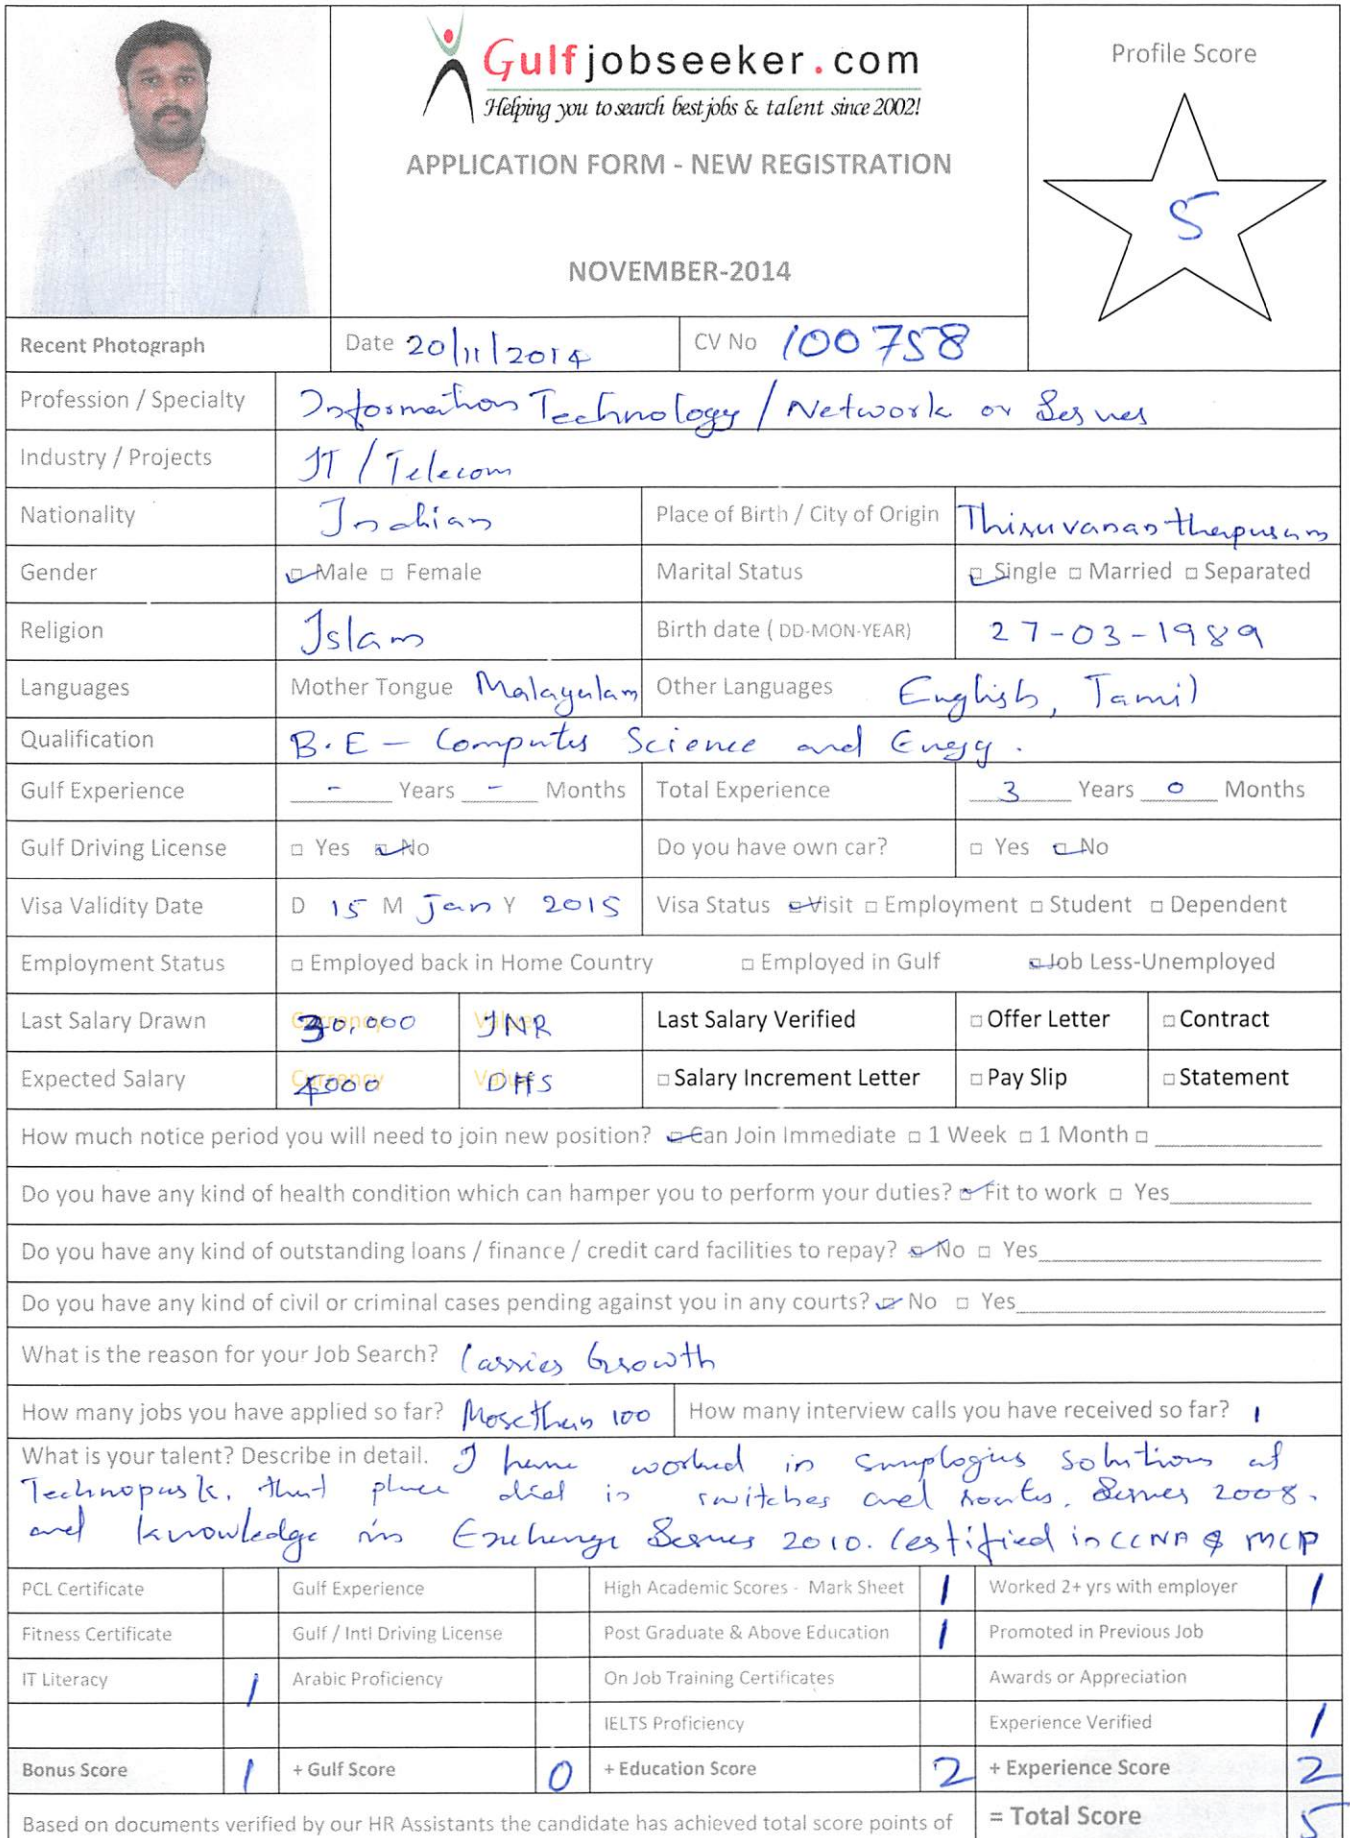 Gulfjobseeker.com
Helping you to search best jobs & talent since 2002!
APPLICATION FORM - NEW REGISTRATION
NOVEMBER-2014
Profile Score
5
Recent Photograph
Date 20/11/2014
CV No 100758
Profession / Specialty Information Technology / Network or Server
Industry / Projects IT / Telecom
Nationality Indian
Place of Birth / City of Origin Thiruvananthapuram
Gender ☑ Male □ Female
Marital Status ☑ Single □ Married □ Separated
Religion Islam
Birth date ( DD-MON-YEAR) 27-03-1989
Languages Mother Tongue Malayalam
Other Languages English, Tamil
Qualification B.E - Computer Science and Engg.
Gulf Experience - Years - Months
Total Experience 3 Years 0 Months
Gulf Driving License □ Yes ☑ No
Do you have own car? □ Yes ☑ No
Visa Validity Date D 15 M Jan Y 2015
Visa Status ☑ Visit □ Employment □ Student □ Dependent
Employment Status □ Employed back in Home Country □ Employed in Gulf ☑ Job Less-Unemployed
Last Salary Drawn Currency 30,000 Value INR
Last Salary Verified □ Offer Letter □ Contract
Expected Salary Currency 4000 Value DHS
□ Salary Increment Letter □ Pay Slip □ Statement
How much notice period you will need to join new position? ☑ Can Join Immediate □ 1 Week □ 1 Month □
Do you have any kind of health condition which can hamper you to perform your duties? ☑ Fit to work □ Yes
Do you have any kind of outstanding loans / finance / credit card facilities to repay? ☑ No □ Yes
Do you have any kind of civil or criminal cases pending against you in any courts? ☑ No □ Yes
What is the reason for your Job Search? Carrier Growth
How many jobs you have applied so far? More than 100
How many interview calls you have received so far? 1
What is your talent? Describe in detail. I have worked in solutions at
Technopark, that place in switches and router, Server 2008.
and knowledge in Exchange Server 2010. Certified in CCNA & MCP
PCL Certificate
Gulf Experience
High Academic Scores - Mark Sheet 1
Worked 2+ yrs with employer 1
Fitness Certificate
Gulf / Intl Driving License
Post Graduate & Above Education 1
Promoted in Previous Job
IT Literacy 1
Arabic Proficiency
On Job Training Certificates
Awards or Appreciation
IELTS Proficiency
Experience Verified 1
Bonus Score 1
+ Gulf Score 0
+ Education Score 2
+ Experience Score 2
Based on documents verified by our HR Assistants the candidate has achieved total score points of
= Total Score 5